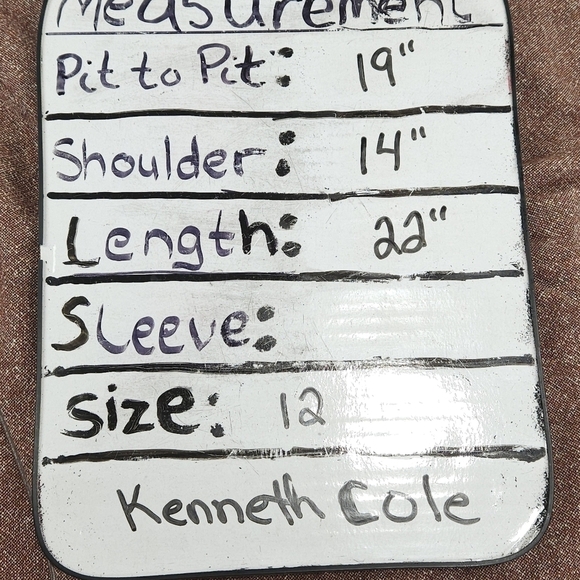 Measurement
Pit to Pit: 19"
Shoulder: 14"
Length: 22"
Sleeve:
Size: 12
Kenneth Cole